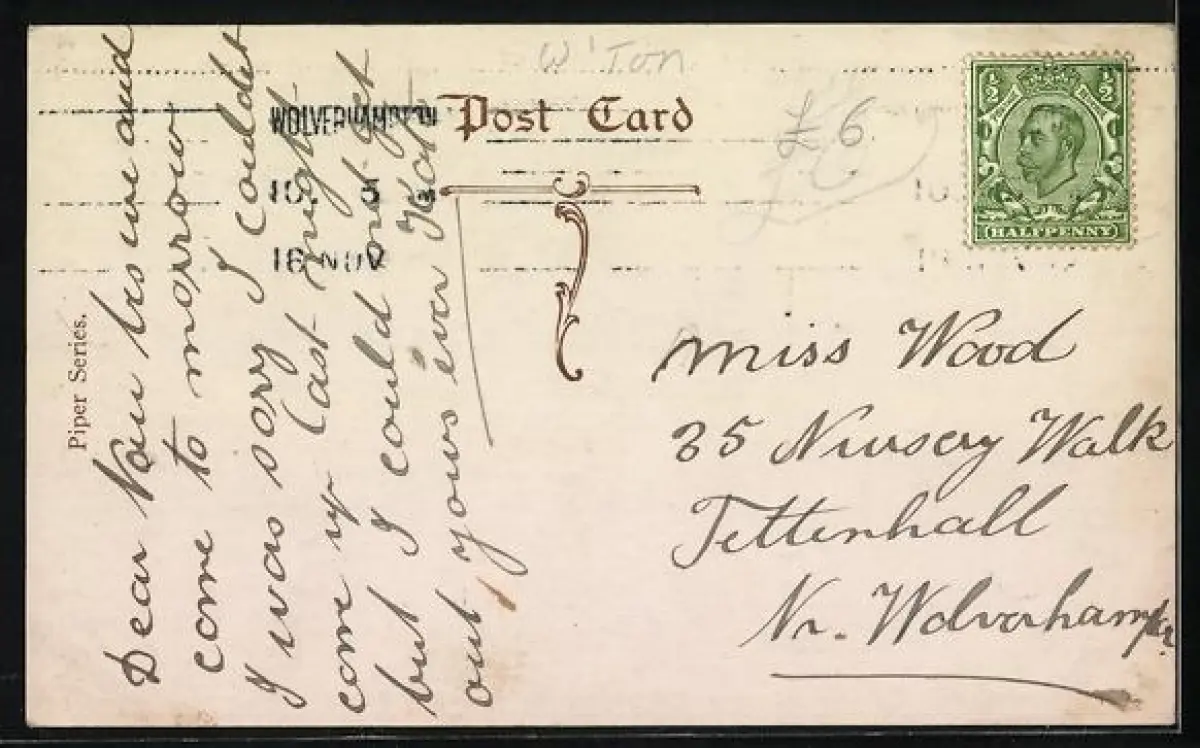 W'Ton
WOLVERHAMPTON
Post Card
£6
½ ½
HALFPENNY
16 NOV
Piper Series.
Dear Nan try and
come to morrow
I was sorry I couldnt
come up last night
but I could not get
out, yours ever
Miss Wood
35 Nursery Walk
Tettenhall
Nr. Wolverhampton